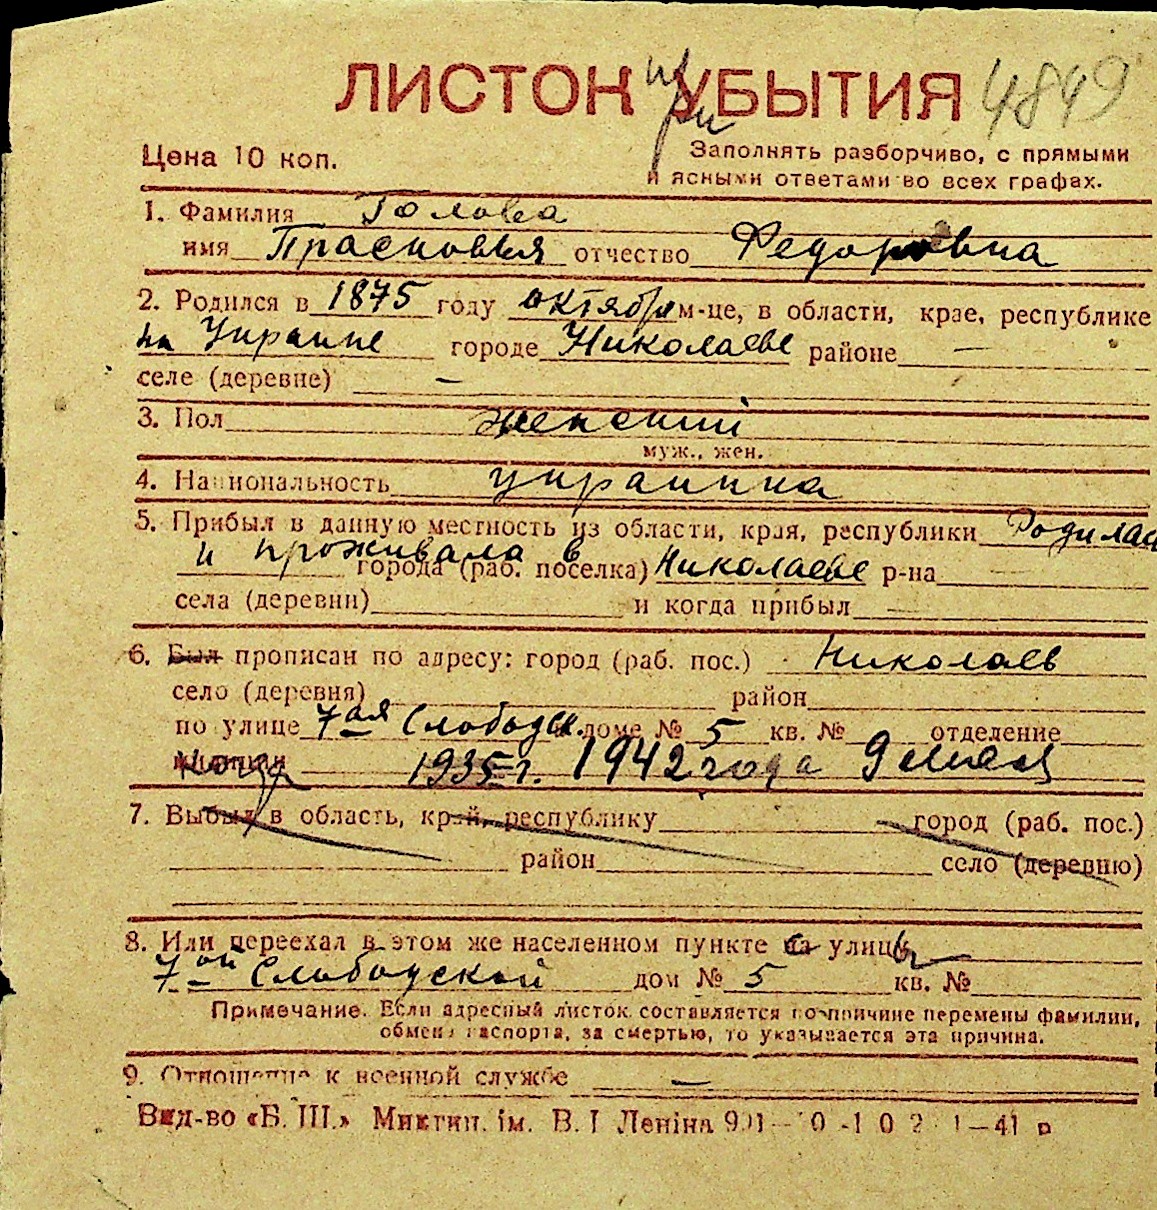 ЛИСТОК при УБЫТИЯ 4849
Цена 10 коп. Заполнять разборчиво, с прямыми
и ясными ответами во всех графах.
1. Фамилия Голова
имя Прасковья отчество Федоровна
2. Родился в 1875 году октябрь м-це, в области, крае, республике
на Украине городе Николаеве районе —
селе (деревне) —
3. Пол женский
муж., жен.
4. Национальность украинка
5. Прибыл в данную местность из области, края, республики Родилас
и проживала в города (раб. поселка) Николаеве р-на
села (деревни) и когда прибыл —
6. Был прописан по адресу: город (раб. пос.) Николаев
село (деревня) район
по улице 7-ая Слободск. доме № 5 кв. № отделение
милиции 1935 г. 1942 года 9
7. Выбыл в область, край, республику город (раб. пос.)
район село (деревню)
8. Или переехал в этом же населенном пункте са улицы
7-ой Слободской дом № 5 кв. №
Примечание. Если адресный листок составляется по причине перемены фамилии,
обмена паспорта, за смертью, то указывается эта причина.
9. Отношение к военной службе —
Вид-во «Б. Ш.» Миктип. ім. В. І Леніна